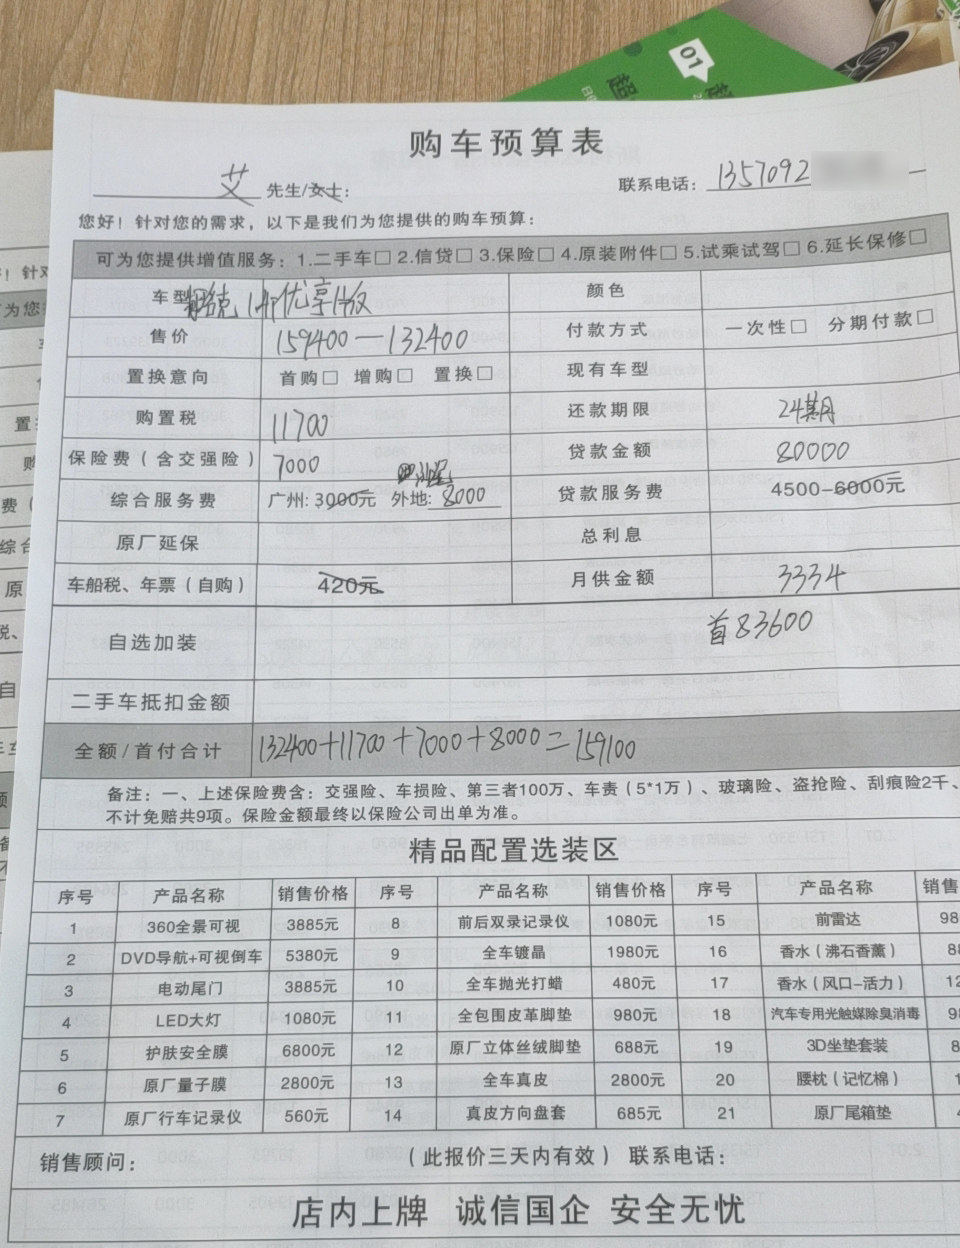 01
购车预算表
艾 先生/女士: 联系电话: 1357092
您好！针对您的需求，以下是我们为您提供的购车预算:
可为您提供增值服务: 1.二手车□ 2.信贷□ 3.保险□ 4.原装附件□ 5.试乘试驾□ 6.延长保修□
车型 优享 颜色
售价 159400—132400 付款方式 一次性□ 分期付款□
置换意向 首购□ 增购□ 置换□ 现有车型
购置税 11700 还款期限 24期
保险费（含交强险） 7000 贷款金额 80000
综合服务费 广州: 3000元 外地: 8000 贷款服务费 4500-6000元
原厂延保 总利息
车船税、年票（自购） 420元 月供金额 3334
自选加装 首83600
二手车抵扣金额
全额/首付合计 132400+11700+7000+8000=159100
备注: 一、上述保险费含: 交强险、车损险、第三者100万、车责（5*1万）、玻璃险、盗抢险、刮痕险2千、
不计免赔共9项。保险金额最终以保险公司出单为准。
精品配置选装区
序号 产品名称 销售价格 序号 产品名称 销售价格 序号 产品名称 销售
1 360全景可视 3885元 8 前后双录记录仪 1080元 15 前雷达 98
2 DVD导航+可视倒车 5380元 9 全车镀晶 1980元 16 香水（沸石香薰） 88
3 电动尾门 3885元 10 全车抛光打蜡 480元 17 香水（风口-活力） 12
4 LED大灯 1080元 11 全包围皮革脚垫 980元 18 汽车专用光触媒除臭消毒 98
5 护肤安全膜 6800元 12 原厂立体丝绒脚垫 688元 19 3D坐垫套装 8
6 原厂量子膜 2800元 13 全车真皮 2800元 20 腰枕（记忆棉） 1
7 原厂行车记录仪 560元 14 真皮方向盘套 685元 21 原厂尾箱垫
销售顾问: （此报价三天内有效） 联系电话:
店内上牌 诚信国企 安全无忧